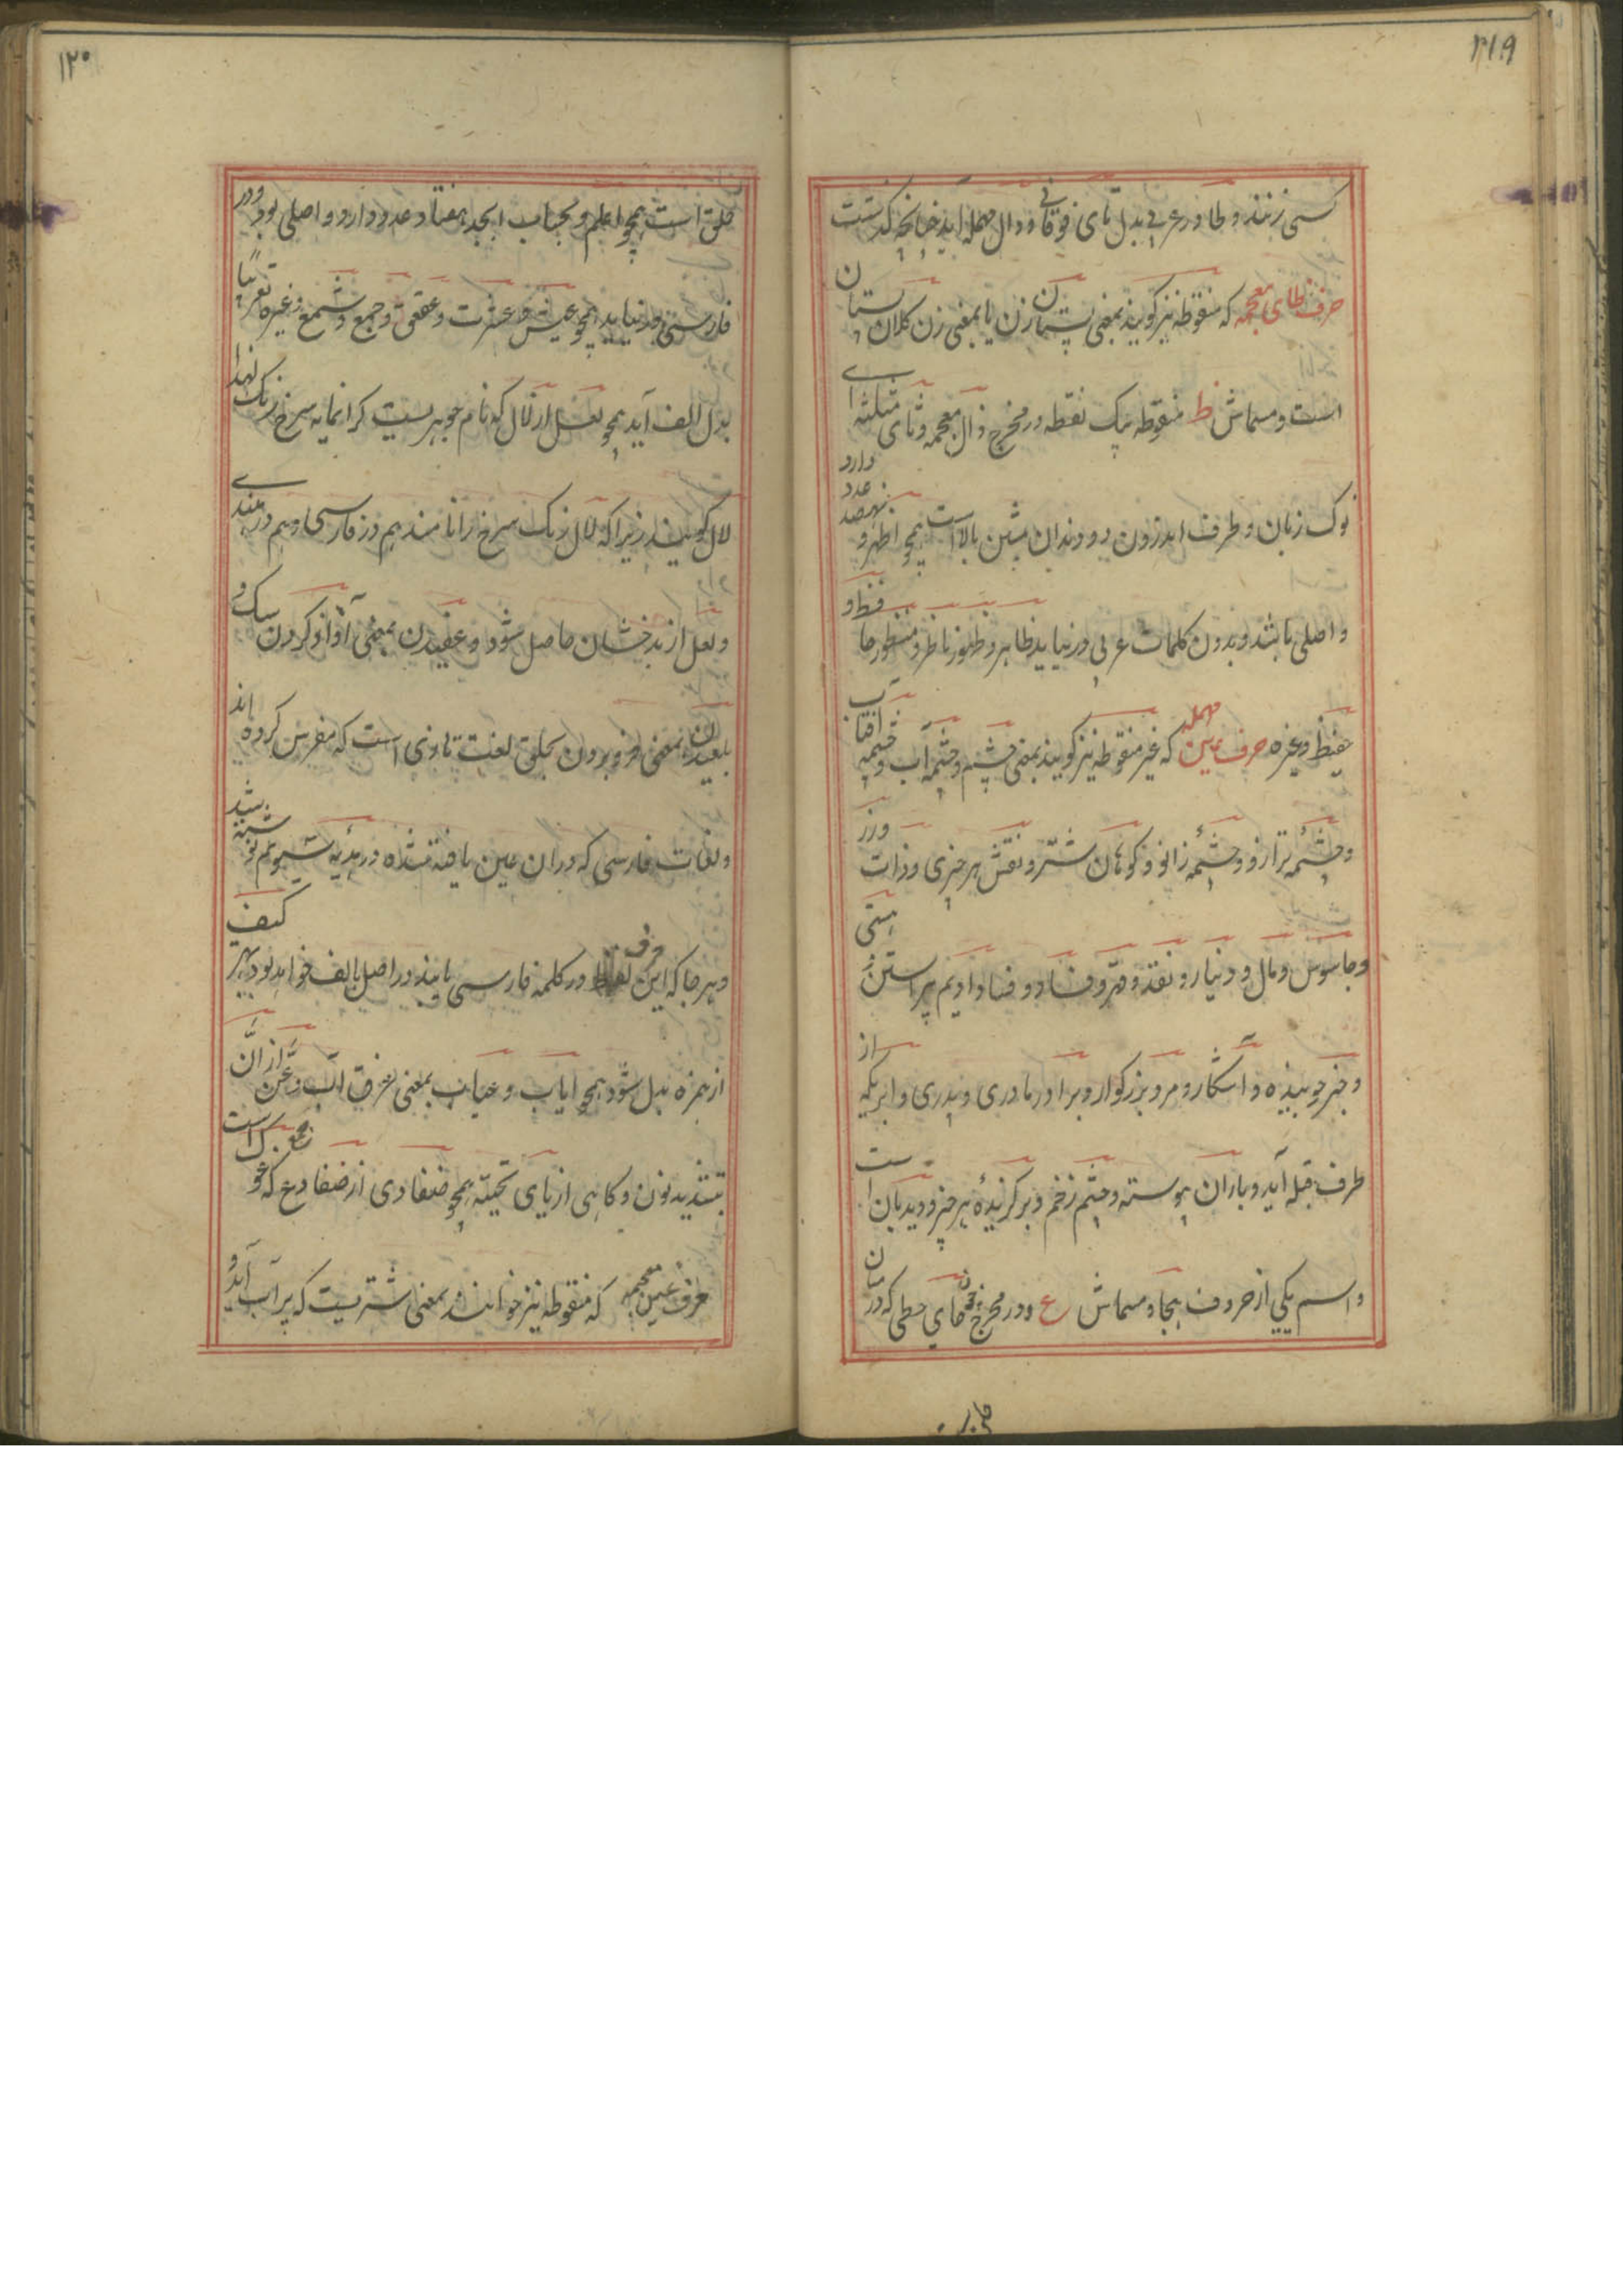 ۲۱۹
کسی زنند و طا در عربی بدل تای فوقانی و دال مهمله آید چنانچه گذشت
حرف ظای معجمه که منقوطه نیز گویند بمعنی پستان زن یا بمعنی زن کلان پستان
است و مسماش ظ منقوطه بیک نقطه در مخرج ذال معجمه و ثای مثلثه ای
نوک زبان و طرف اندرون دو دندان پیشین بالاست همچو اظهر و نهصد عدد دارد
و اصلی باشد و بدون کلمات عربی در نیاید ظاهر و ظهور ناظر و منظور حافظ و
حفیظ وغیره حرف عین مهمله که غیر منقوطه نیز گویند بمعنی چشم و چشمه آب و چشمه آفتاب
و چشمه ترازو و چشمه زانو و کوهان شتر و نقش هر چیزی و ذات و زر
و جاسوس و مال و دینار و نقد و مهر و فساد و فنا و ادیم پیراستن هستی
و چیز جوینده و آشکار و مرد بزرگوار و برادر مادری و پدری و ابریکه از
طرف قبله آید و باران پیوسته و چشم زخم و برگزیده هر چیز و دیدبان است
و اسم یکی از حروف هجا و مسماش ع و در مخرج حای حطی که درمیان
۱۲۰
حلق است همچو اعلم و بحساب ابجد هفتاد عدد دارد و اصلی بود و در
فارسی در نیاید همچو عیش و عشرت و عقعق و جمع و شمع وغیره تعریبا
بدل الف آید همچو لعل از لال که نام جوهریست گرانمایه سرخ رنگ لهذا
لال گویند زیرا که لال رنگ سرخ را نامند هم در فارسی و هم در هندی
و لعل از بدخشان حاصل شود و عفیدن بمعنی آواز کردن سگ و
بلعیدن بمعنی فرو بردن بحلق لغت تاوزی است که مفرس کرده اند
و لغات فارسی که در آن عین یافته نشده در بدیه
و هر جا که این حرف در کلمه فارسی یابند در اصل الف خواهد بود بهر کیف
از همزه بدل شود همچو ایاب و عیاب بمعنی غرق آب و عن از ان
بتشدید نون و گاهی از یای تحتیه همچو ضفادی از ضفادع که غوک است
حرف غین معجمه که منقوطه نیز خوانند بمعنی شتریست که بر آب آید و